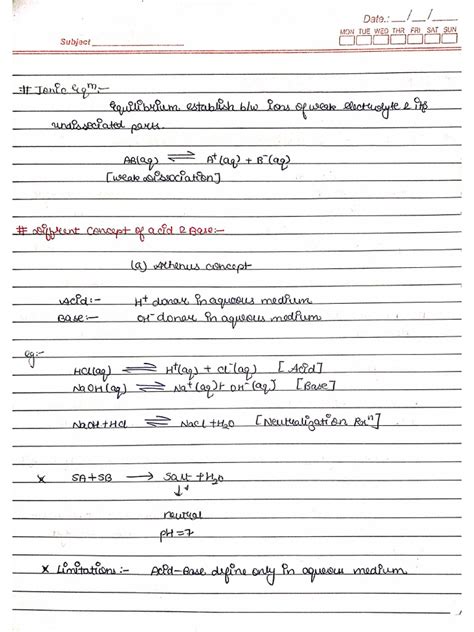 Date.: __/__/__
MON TUE WED THR FRI SAT SUN
Subject
# Ionic Eqm:-
Equilibrium establish b/w ions of weak electrolyte & its
undissociated parts.
AB(aq) ⇌ A⁺(aq) + B⁻(aq)
[weak Dissociation]
# Different Concept of acid & Base:-
(a) Arhenus concept
Acid:- H⁺ donar in aqueous medium
Base:- OH⁻ donar in aqueous medium
eg:-
HCl(aq) ⇌ H⁺(aq) + Cl⁻(aq) [Acid]
NaOH(aq) ⇌ Na⁺(aq) + OH⁻(aq) [Base]
NaOH + HCl ⇌ NaCl + H₂O [Neutralization Rxⁿ]
* SA + SB → Salt + H₂O
↓
neutral
pH = 7
* Limitations:- Acid-Base define only in aqueous medium